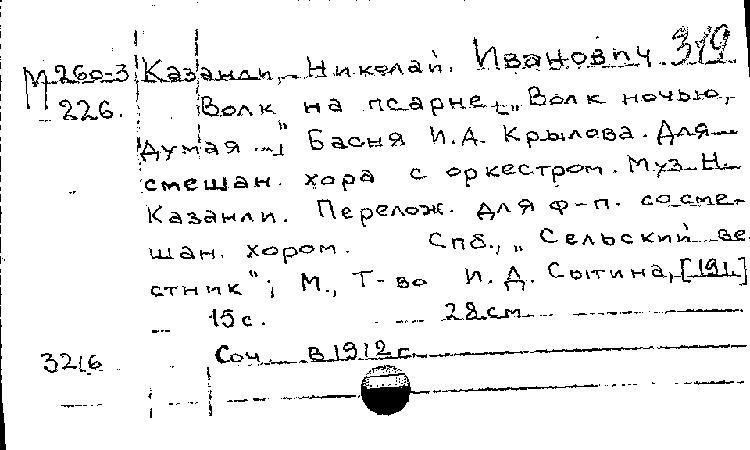 М 260-3 Казанли, Николай Иванович. 319
226. Волк на псарне. [„Волк ночью,
думая ..."] Басня И.А. Крылова. Для
смешан. хора с оркестром. Муз. Н.
Казанли. Перелож. для ф-п. со сме-
шан. хором. Спб., „Сельский ве-
стник"; М., Т-во И. Д. Сытина, [191.]
15 с. 28 см
3216 Соч. в 1912 г.